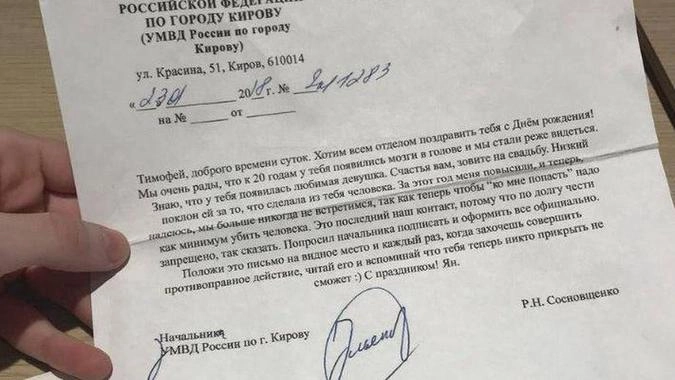 РОССИЙСКОЙ ФЕДЕРАЦИИ
ПО ГОРОДУ КИРОВУ
(УМВД России по городу
Кирову)
ул. Красина, 51, Киров, 610014
« 2301 2018 г. № 11283
на № от
Тимофей, доброго времени суток. Хотим всем отделом поздравить тебя с Днём рождения!
Мы очень рады, что к 20 годам у тебя появились мозги в голове и мы стали реже видеться.
Знаю, что у тебя появилась любимая девушка. Счастья вам, зовите на свадьбу. Низкий
поклон ей за то, что сделала из тебя человека. За этот год меня повысили, и теперь,
надеюсь, мы больше никогда не встретимся, так как теперь чтобы "ко мне попасть" надо
как минимум убить человека. Это последний наш контакт, потому что по долгу чести
запрещено, так сказать. Попросил начальника подписать и оформить все официально.
Положи это письмо на видное место и каждый раз, когда захочешь совершить
противоправное действие, читай его и вспоминай что тебя теперь никто прикрыть не
сможет :) С праздником! Ян.
Начальник
УМВД России по г. Кирову
Р.Н. Сосновщенко